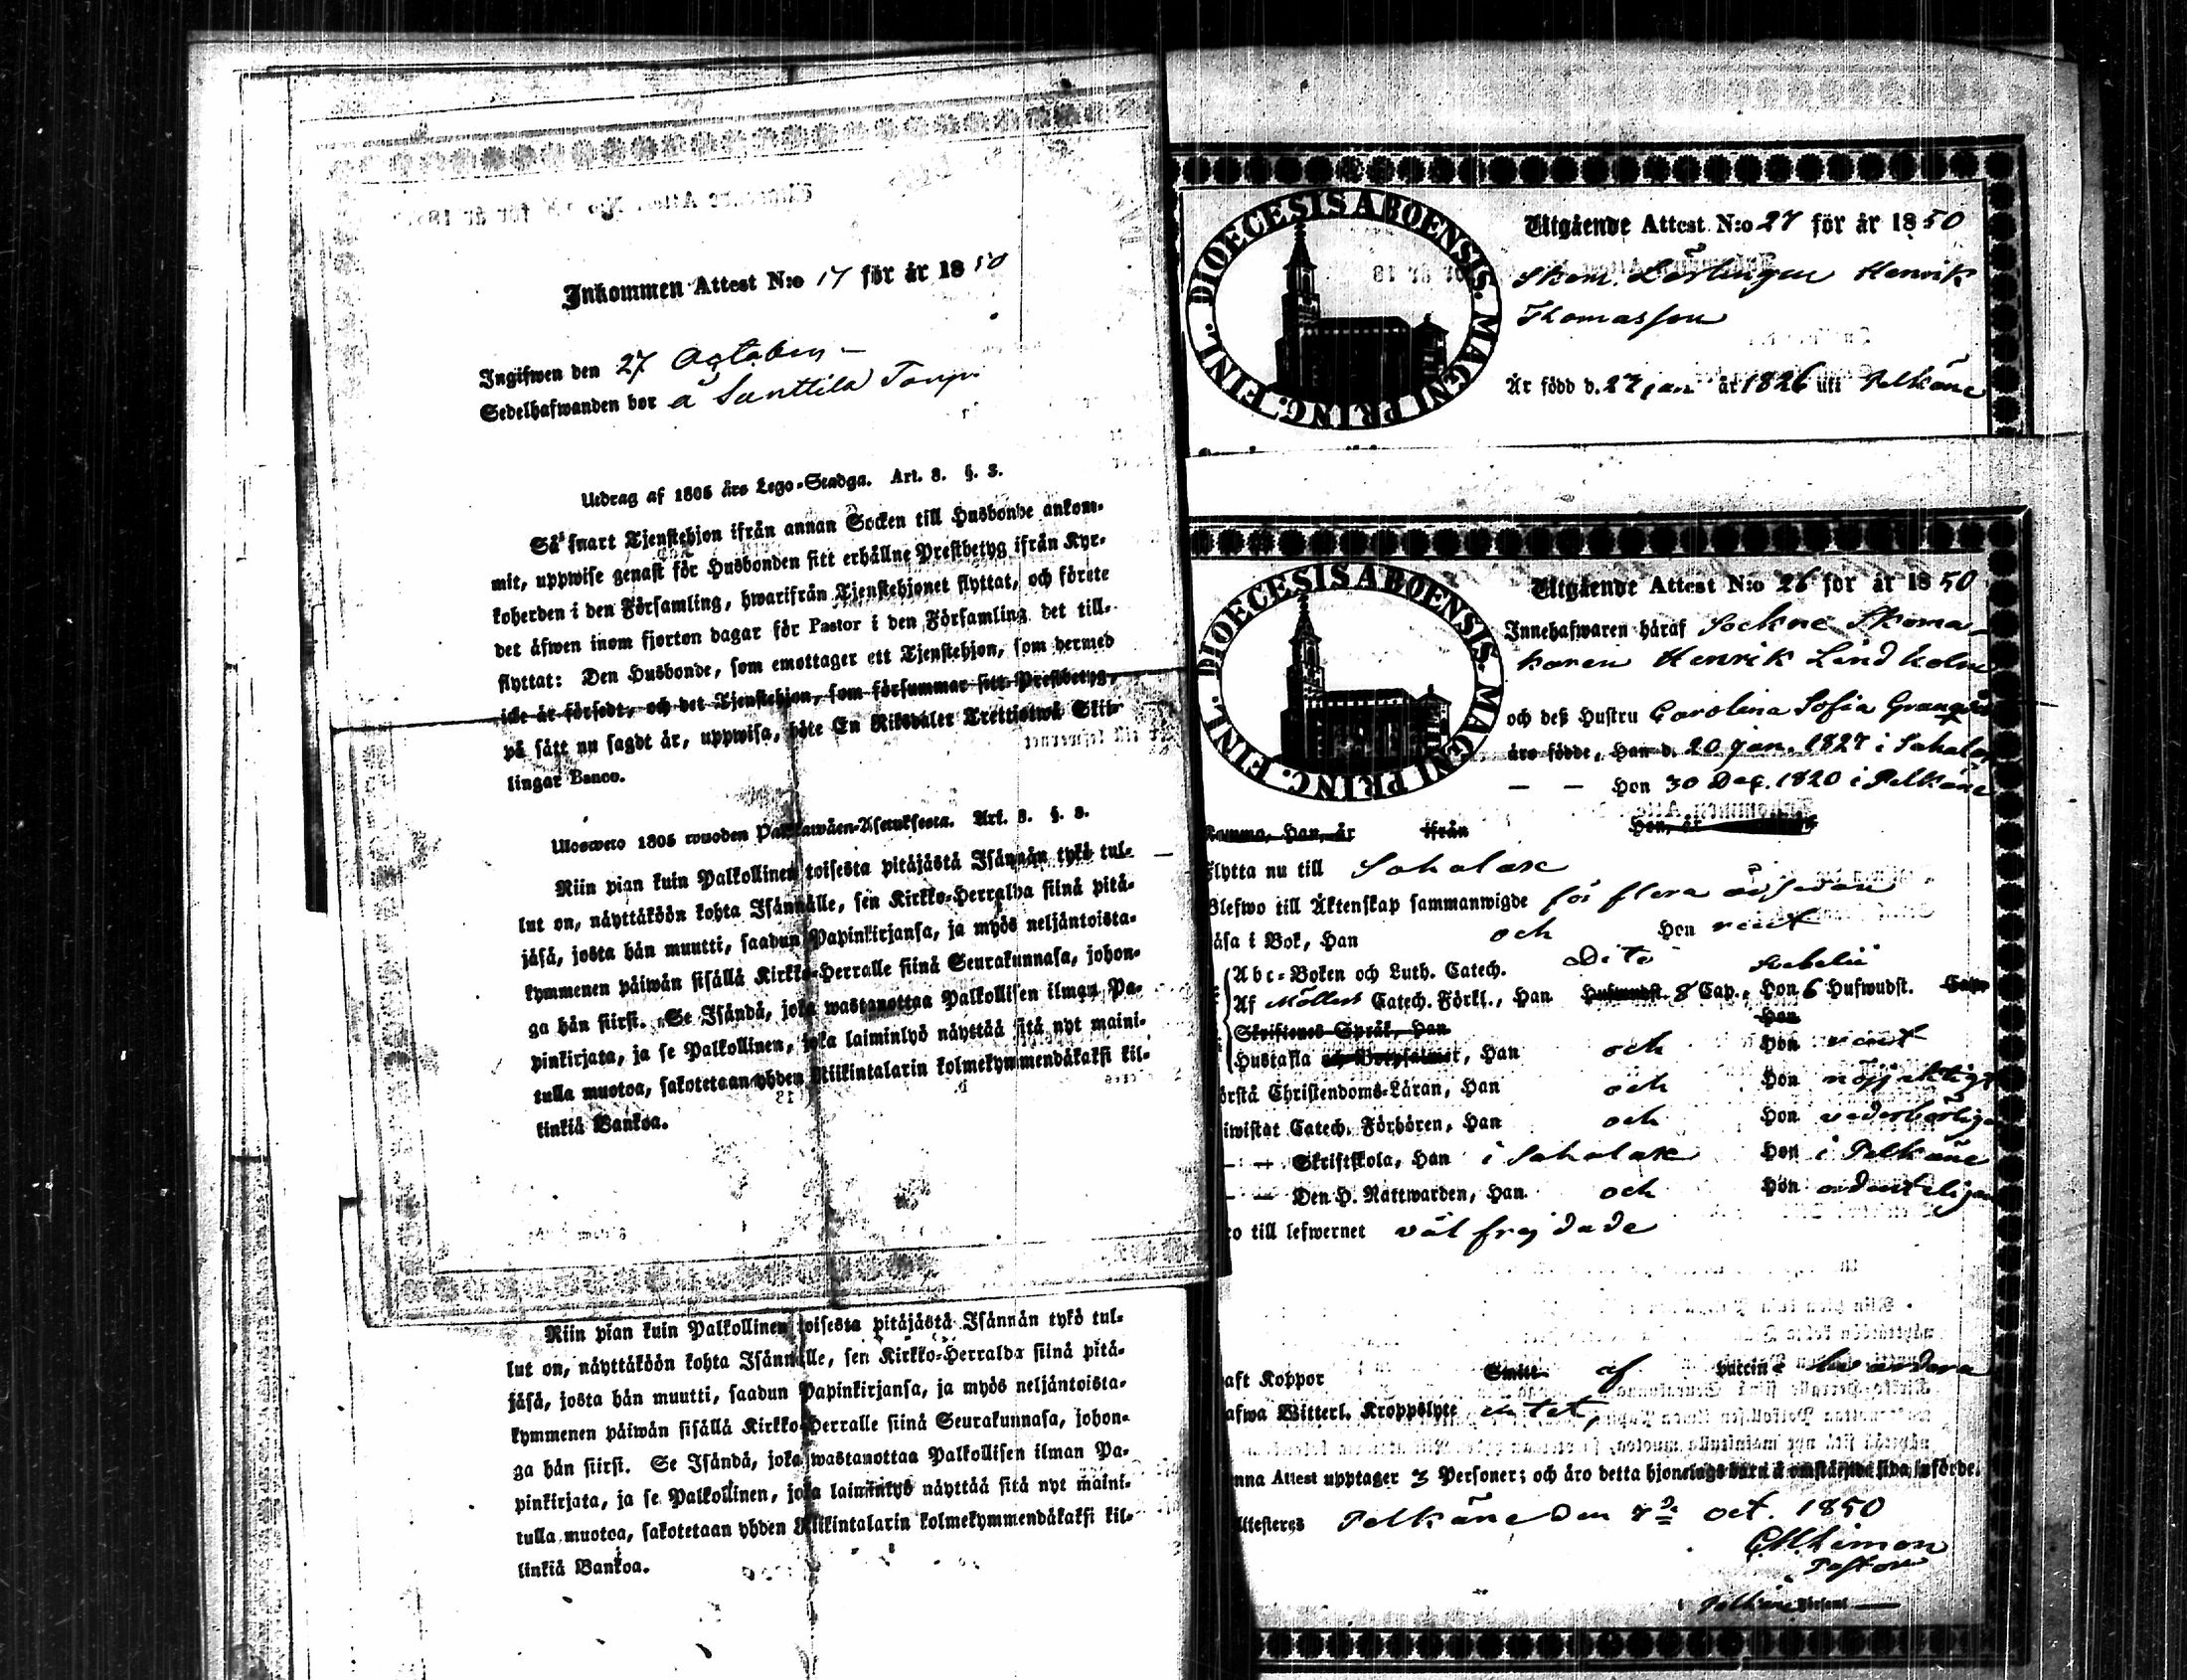 Inkommen Attest N:o 17 för år 1850
Ingifwen den 27 October –
Sedelhafwanden bor å Santtila Torp.
Utdrag af 1805 års Lego-Stadga. Art. 3. §. 3.
Så snart Tjenstehjon ifrån annan Socken till Husbonde ankom-
mit, uppwise genast för Husbonden sitt erhållne Prestbetyg ifrån Kyr-
koherden i den Församling, hwarifrån Tjenstehjonet flyttat, och förete
det äfwen inom fjorton dagar för Pastor i den Församling det till-
flyttat: Den Husbonde, som emottager ett Tjenstehjon, som dermed
icke är försedt, och det Tjenstehjon, som försummar sitt Prestbetyg,
på sätt nu sagdt är, uppwisa, böte En Riksdaler Trettiotwå Skil-
lingar Banco.
Ulosweto 1805 wuoden Palkkawäen-Asetuksesta. Art. 3. §. 3.
Niin pian kuin Palkollinen toisesta pitäjästä Isännän tykö tul-
lut on, näyttäköön kohta Isännälle, sen Kirkko-Herralda siinä pitä-
jäsä, josta hän muutti, saadun Papinkirjansa, ja myös neljäntoista-
kymmenen päiwän sisällä Kirkko-Herralle siinä Seurakunnasa, johon-
ga hän siirsi. Se Isändä, joka wastanottaa Palkollisen ilman Pa-
pinkirjata, ja se Palkollinen, joka laiminlyö näyttää sitä nyt maini-
tulla muotoa, sakotetaan yhden Riikintalarin kolmekymmendäkaksi kil-
linkiä Bankoa.
Niin pian kuin Palkollinen toisesta pitäjästä Isännän tykö tul-
lut on, näyttäköön kohta Isännälle, sen Kirkko-Herralda siinä pitä-
jäsä, josta hän muutti, saadun Papinkirjansa, ja myös neljäntoista-
kymmenen päiwän sisällä Kirkko-Herralle siinä Seurakunnasa, johon-
ga hän siirsi. Se Isändä, joka wastanottaa Palkollisen ilman Pa-
pinkirjata, ja se Palkollinen, joka laiminlyö näyttää sitä nyt maini-
tulla muotoa, sakotetaan yhden Riikintalarin kolmekymmendäkaksi kil-
linkiä Bankoa.
DIOECESIS ABOENSIS. MAGNI PRINC. FINL.
Utgående Attest N:o 27 för år 1850
Skom. Lärlingen Henrik
Thomasson
Är född d. 27 jan år 1826 uti Pelkäne
DIOECESIS ABOENSIS. MAGNI PRINC. FINL.
Utgående Attest N:o 26 för år 1850
Innehafwaren häraf Sockne Skoma-
karen Henrik Lindholm
och deß Hustru Carolina Sofia
äro födde, Han d. 20 jan. 1827 i Sahalax
— — Hon 30 Dec. 1820 i Pelkäne
Komma, Han, år ifrån Hon, år
flytta nu till Sahalax
Blefwo till Äktenskap sammanwigde för flera år sedan
äsa i Bok, Han och Hon rent
Abc-Boken och Luth. Catech. Dito
Af Möllers Catech. Förkl., Han Hufwudst. 8 Cap., Hon 6 Hufwudst. Cap.
Skriftenes Språk, Han Hon
Hustafla och Botpsalmer, Han och Hon rent
örstå Christendoms-Läran, Han och Hon nöjaktigt
iwistat Catech. Förhören, Han och Hon vederbörligen
— — Skriftskola, Han i Sahalax Hon i Pelkäne
— — Den H. Nattwarden, Han och Hon ordenteligen
ro till lefwernet väl frejdade
aft Koppor Smitt. af vaccin
afwa Witterl. Kroppslyte
nna Attest upptager 3 Personer; och äro detta hjonelags barn å omstående sida införde.
ttesteres Pelkäne den 8de oct. 1850
Pastor
i Pelkäne Församl.